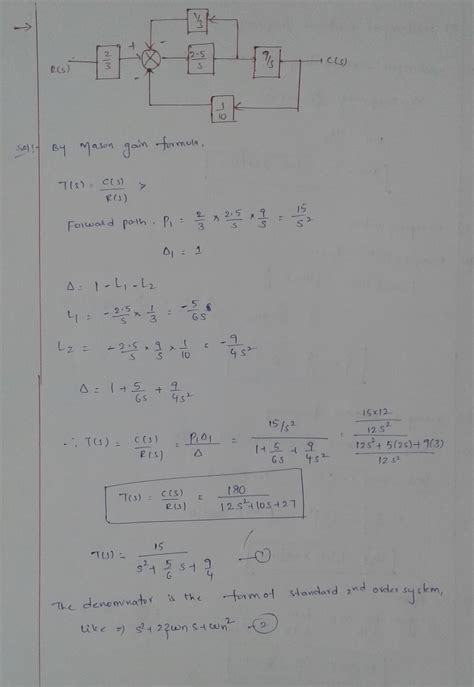 1/3
R(s) 2/3 + - 2.5/s 9/s C(s)
-
1/10
Sol:- By Mason gain formula.
T(s) = C(s)/R(s) >
Forward path. P1 = 2/3 × 2.5/s × 9/s = 15/s²
Δ1 = 1
Δ = 1 - L1 - L2
L1 = -2.5/s × 1/3 = -5/6s
L2 = -2.5/s × 9/s × 1/10 = -9/4s²
Δ = 1 + 5/6s + 9/4s²
∴ T(s) = C(s)/R(s) = P1Δ1/Δ = (15/s²)/(1 + 5/6s + 9/4s²) = (15×12/12s²)/((12s² + 5(2s) + 9(3))/12s²)
T(s) = C(s)/R(s) = 180/(12s²+10s+27)
T(s) = 15/(s² + 5/6 s + 9/4) — ①
The denominator is the form of standard 2nd order system,
like ⇒ s² + 2ζωns + ωn² — ②